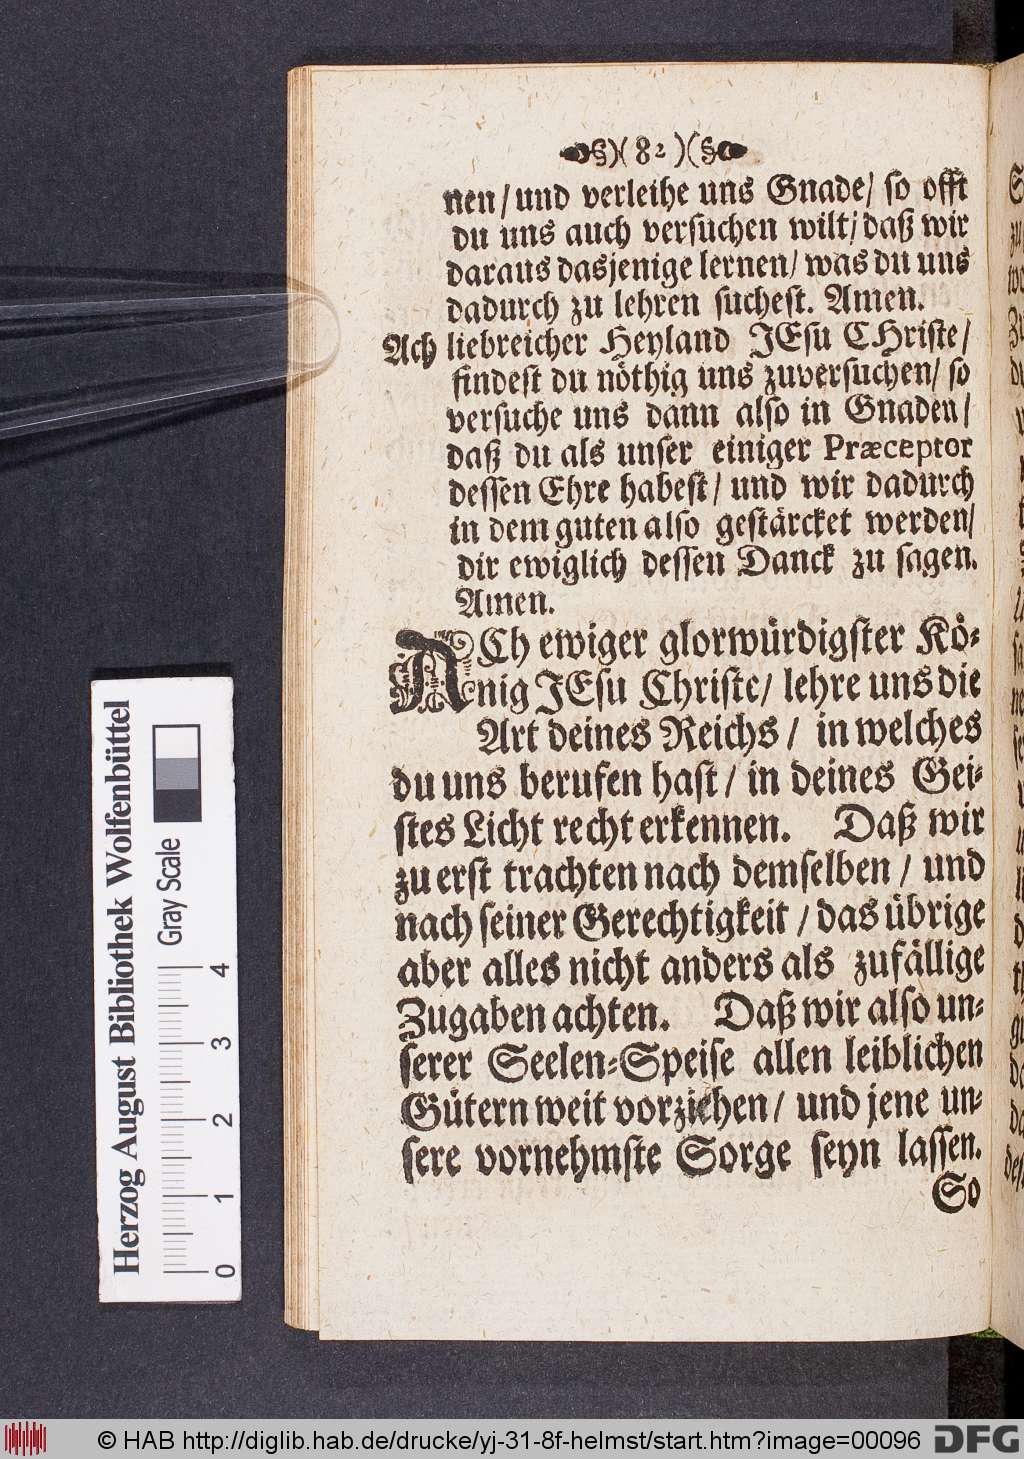 §)(82)(§
nen/ und verleihe uns Gnade/ so offt
du uns auch versuchen wilt/ daß wir
daraus dasjenige lernen/ was du uns
dadurch zu lehren suchest. Amen.
Ach liebreicher Heyland JEsu CHriste/
findest du nöthig uns zuversuchen/ so
versuche uns dann also in Gnaden/
daß du als unser einiger Præceptor
dessen Ehre habest/ und wir dadurch
in dem guten also gestärcket werden/
dir ewiglich dessen Danck zu sagen.
Amen.
ACh ewiger glorwürdigster Kö-
nig JEsu Christe/ lehre uns die
Art deines Reichs/ in welches
du uns berufen hast/ in deines Gei-
stes Licht recht erkennen. Daß wir
zu erst trachten nach demselben/ und
nach seiner Gerechtigkeit/ das übrige
aber alles nicht anders als zufällige
Zugaben achten. Daß wir also un-
serer Seelen-Speise allen leiblichen
Gütern weit vorziehen/ und jene un-
sere vornehmste Sorge seyn lassen.
So
Herzog August Bibliothek Wolfenbüttel
Gray Scale
0 1 2 3 4
© HAB http://diglib.hab.de/drucke/yj-31-8f-helmst/start.htm?image=00096
DFG